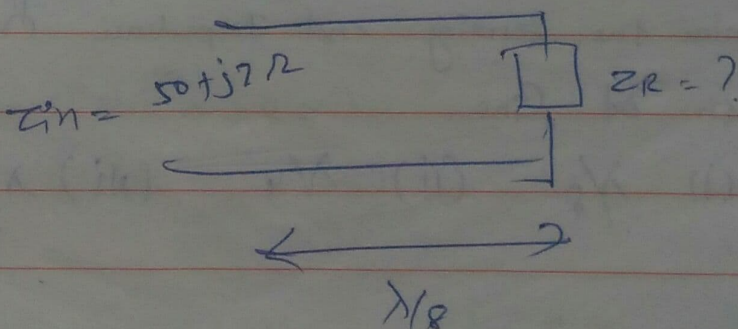 Zin = 50+j? Ω
ZR = ?
λ/8